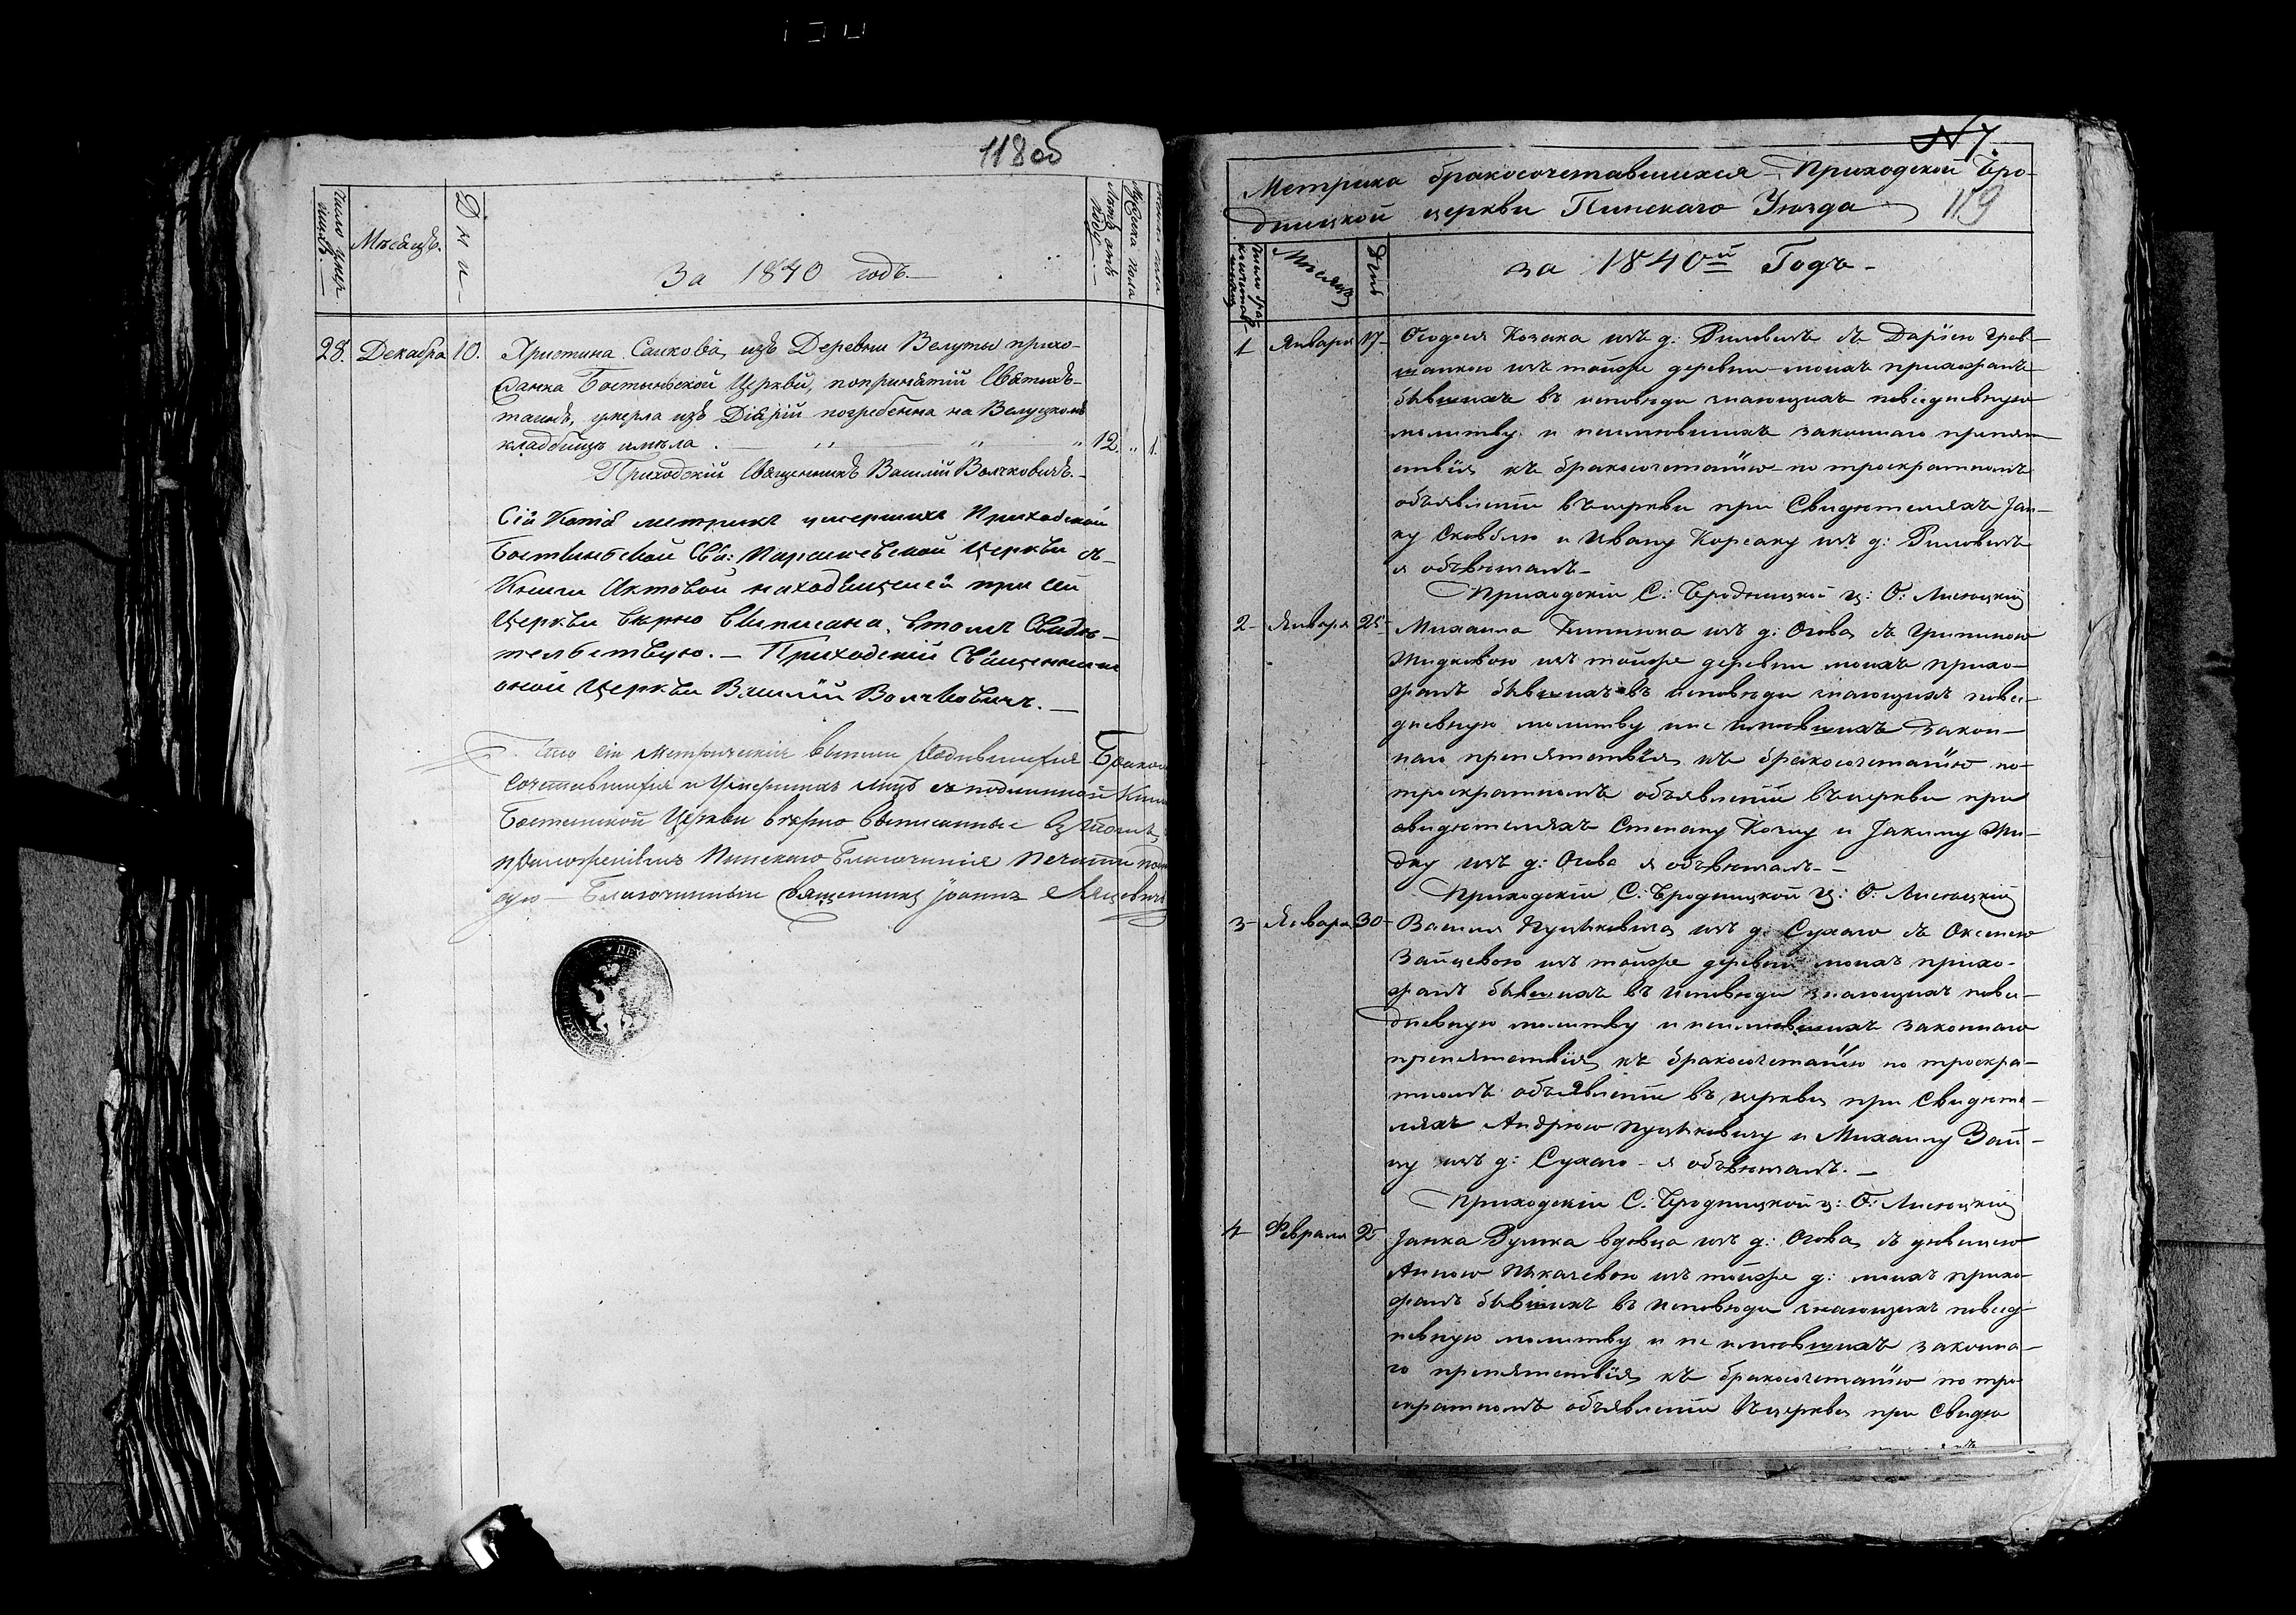 118 об
Число умер-
шихъ.
Мѣсяцъ.
Дни
За 1840 годъ.
Лѣта отъ
роду
Мужска пола
28. Декабря 10. Христина Санкова, изъ Деревни Велуты прихо-
жанка Бостынской Церкви, попринятіи Святыхъ
таинъ, умерла изъ Діаріи погребенна на Велуцкомъ
кладбищѣ имѣла 12. " 1.
Приходскій Священникъ Василій Волчковичъ.
Сія Копія метрикъ умершихъ Приходской
Бостынской Свя: Параскевской Церкви съ
Книги Актовой находящейся при сей
Церкви вѣрно выписана, втомъ Свидѣ-
тельствую. — Приходскій Священникъ
оной Церкви Василій Волчковичъ. —
Что сіи Метрическія выписи Родившихся Брако
сочетавшихся и Умершихъ Лицъ съ подлинной Книг
Бостынской Церкви вѣрно выписанные въ томъ,
приложеніемъ Пинскаго Благочинія печати
дую — Благочинный Священникъ Іоаннъ
№ 7.
Метрика бракосочетавшихся Приходской Бро-
дницкой церкви Пинскаго Уѣзда 119
Мѣсяцъ
Дни
за 1840й Годъ
1 Января 17. Ѳеодора Козака изъ д: съ Дарією
изъ тойже деревни моихъ прихожанъ
бывшихъ въ исповѣди знающихъ повседневную
молитву и неимѣвшихъ законнаго препят
ствія къ бракосочетанію по троекратномъ
объявленіи въцеркви при Свидѣтеляхъ Ян-
ку и Ивану Корсаку изъ д:
я обвѣнчалъ
Приходскій С: Бродницкой ц: О: Лисецкій
2 Января 25 Михаила изъ д: Огова съ
Жидковою изъ тойже деревни моихъ прихо-
жанъ бывшихъ въ исповѣди знающихъ повсе-
дневную молитву нне имѣвшихъ закон-
наго препятствія къ бракосочетанію по-
троекратномъ объявленіи въцеркви при
свидѣтеляхъ Степану и Якиму Жи-
дку изъ д: Огова я обвѣнчалъ
Приходскій С: Бродницкой Ц: О: Лисецкій
3 Января 30 Василія изъ д: Сухаго съ
Зайцевою изъ тойже деревни моихъ прихо-
жанъ бывшихъ въ исповѣди знающихъ повсе-
дневную молитву и неимѣвшихъ законнаго
препятствія къ бракосочетанію по троекра-
тномъ объявленіи въ церкви при Свидѣте-
ляхъ Андрею и Михаилу Зай-
цу изъ д: Сухаго я обвѣнчалъ. —
Приходскій С: Бродницкой ц: О: Лисецкій
4 Февраля 25 Янка вдовца изъ д: Огова съ дѣвицею
Анною изъ тойже д: моихъ прихо-
жанъ бывшихъ въ исповѣди знающихъ повсед-
невную молитву и не имѣвшихъ законна-
го препятствія къ бракосочетанію по тро
екратномъ объявленіи въцеркви при Свидѣ